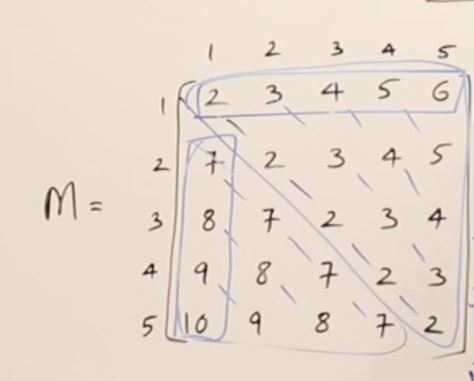 1 2 3 4 5
1 2 3 4 5 6
2 7 2 3 4 5
M = 3 8 7 2 3 4
4 9 8 7 2 3
5 10 9 8 7 2